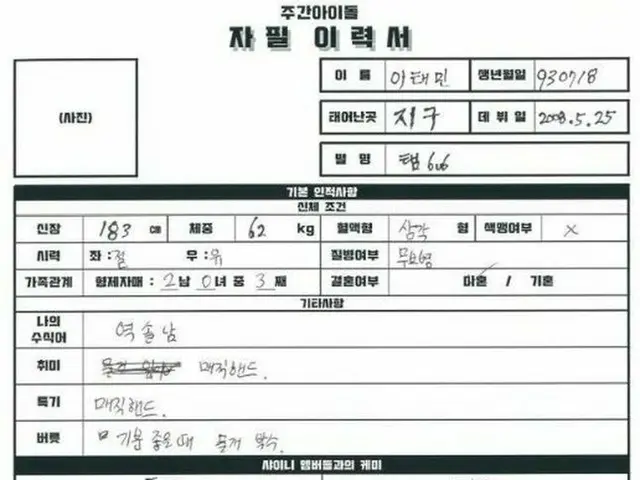 주간아이돌
자필 이력서
(사진)
이 름 이태민 생년월일 930718
태어난곳 지구 데 뷔 일 2008.5.25
별 명 탬
기본 인적사항
신체 조건
신장 183 cm 체중 62 kg 혈액형 삼각 형 색맹여부 x
시력 좌 : 절 우 : 유 질병여부 무보병
가족관계 형제자매 : 2남 0녀 중 3째 결혼여부 미혼 / 기혼
기타사항
나의 수식어 역솔남
취미 매직핸드.
특기 매직핸드.
버릇 ㅁ 기분 좋을때 물개 박수.
샤이니 멤버들과의 케미